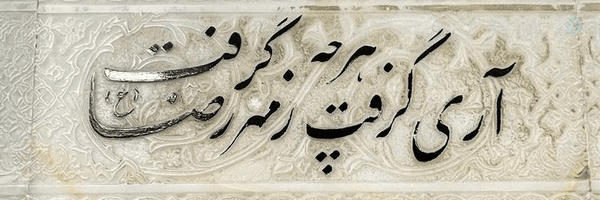 آری گرفت هرچه گرفت ز مهر رضا (ع) گرفت